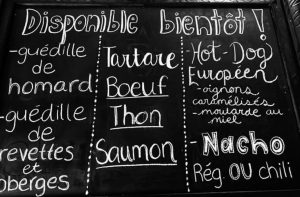 Disponible bientôt !
-guédille
de
homard
-guédille
de
revettes
et
oberges
Tartare
Boeuf
Thon
Saumon
-Hot-Dog
Européen
-oignons
caramélisés
-moutarde au
miel
-Nacho
Rég OU chili